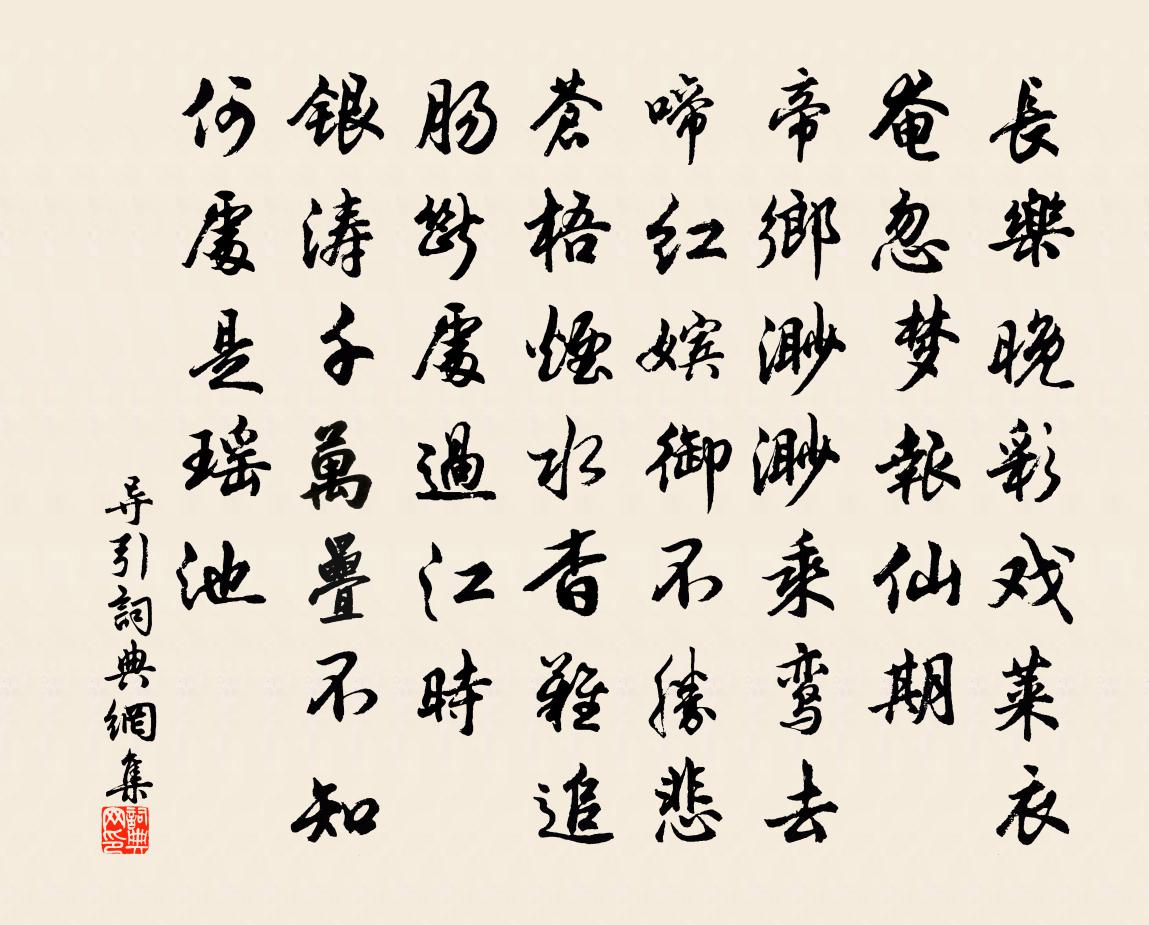 長樂晚彩戏萊衣
奄忽梦報仙期
帝鄉渺渺乘鸾去
啼紅嬪御不勝悲
蒼梧煙水杳難追
腸斷處過江時
銀涛千萬疊不知
何處是瑶池
导引詞典網集
詞典网印